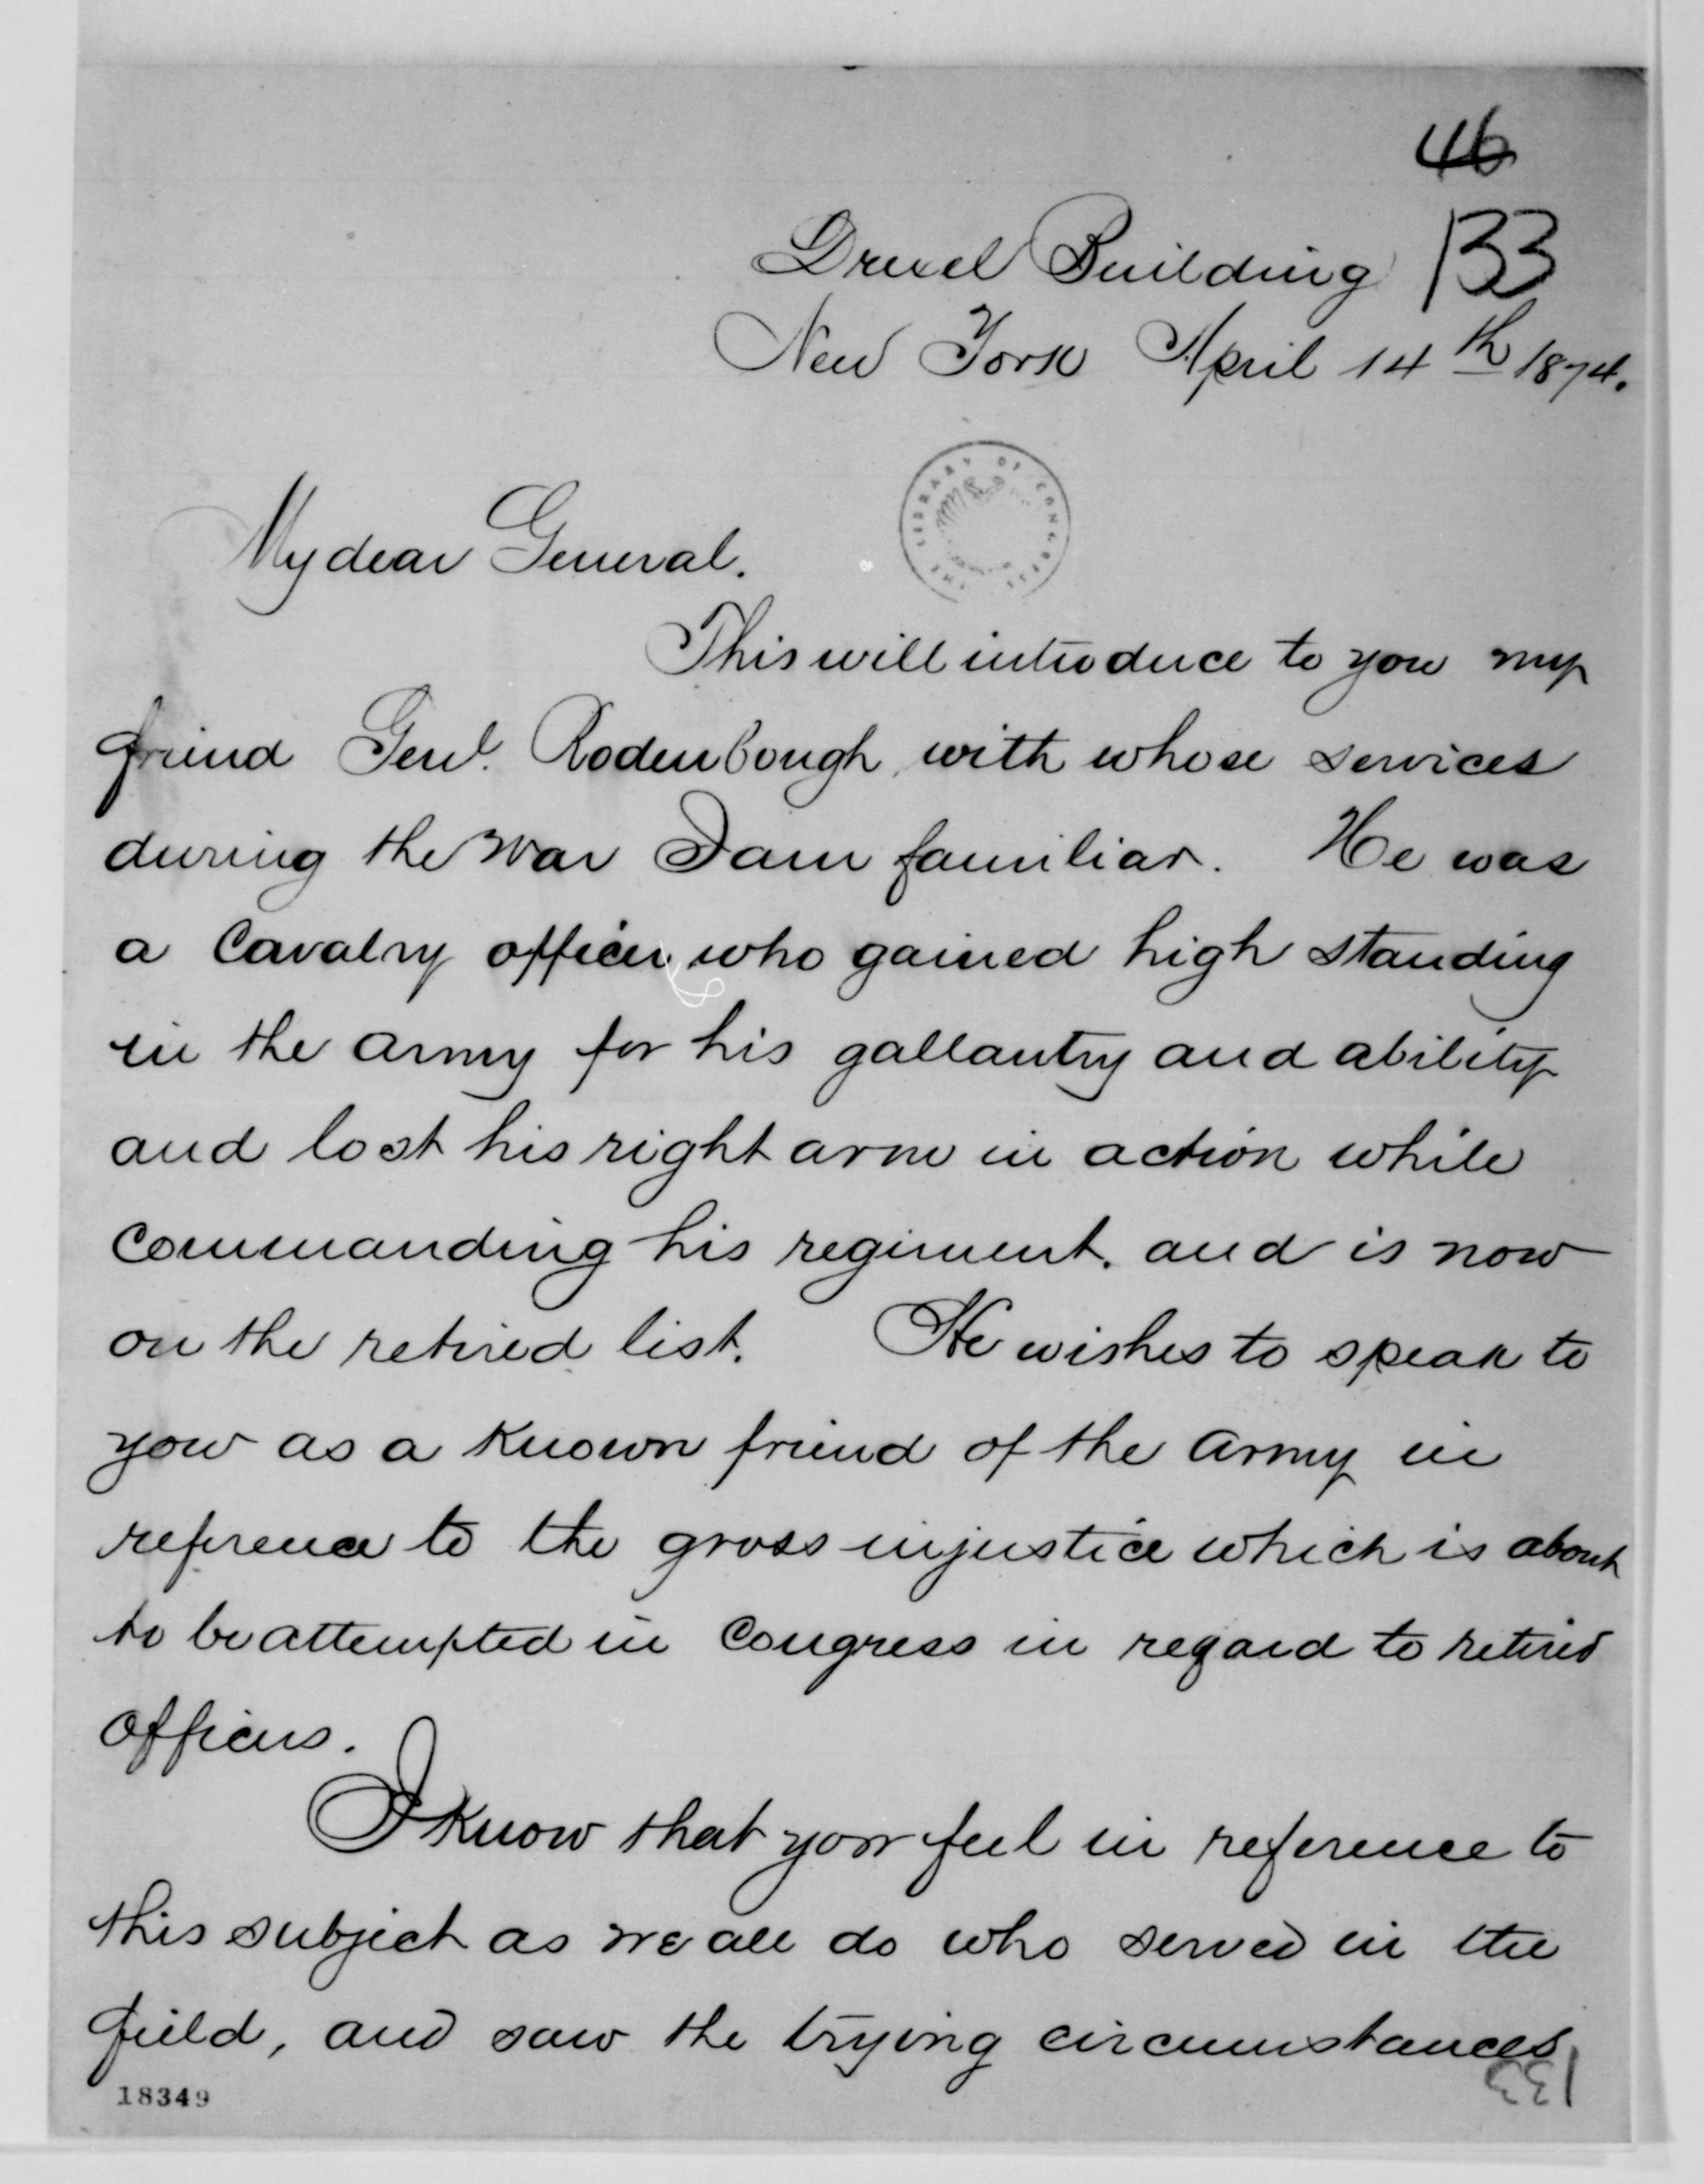 46
Drexel Building 133
New York April 14th 1874.
THE LIBRARY OF CONGRESS
My dear General.
This will introduce to you my
friend Genl. Rodenbough, with whose services
during the war I am familiar. He was
a Cavalry officer who gained high standing
in the army for his gallantry and ability
and lost his right arm in action while
commanding his regiment. and is now
on the retired list. He wishes to speak to
you as a known friend of the army in
reference to the gross injustice which is about
to be attempted in Congress in regard to retired
officers.
I know that you feel in reference to
this subject as we all do who served in the
field, and saw the trying circumstances
18349
133